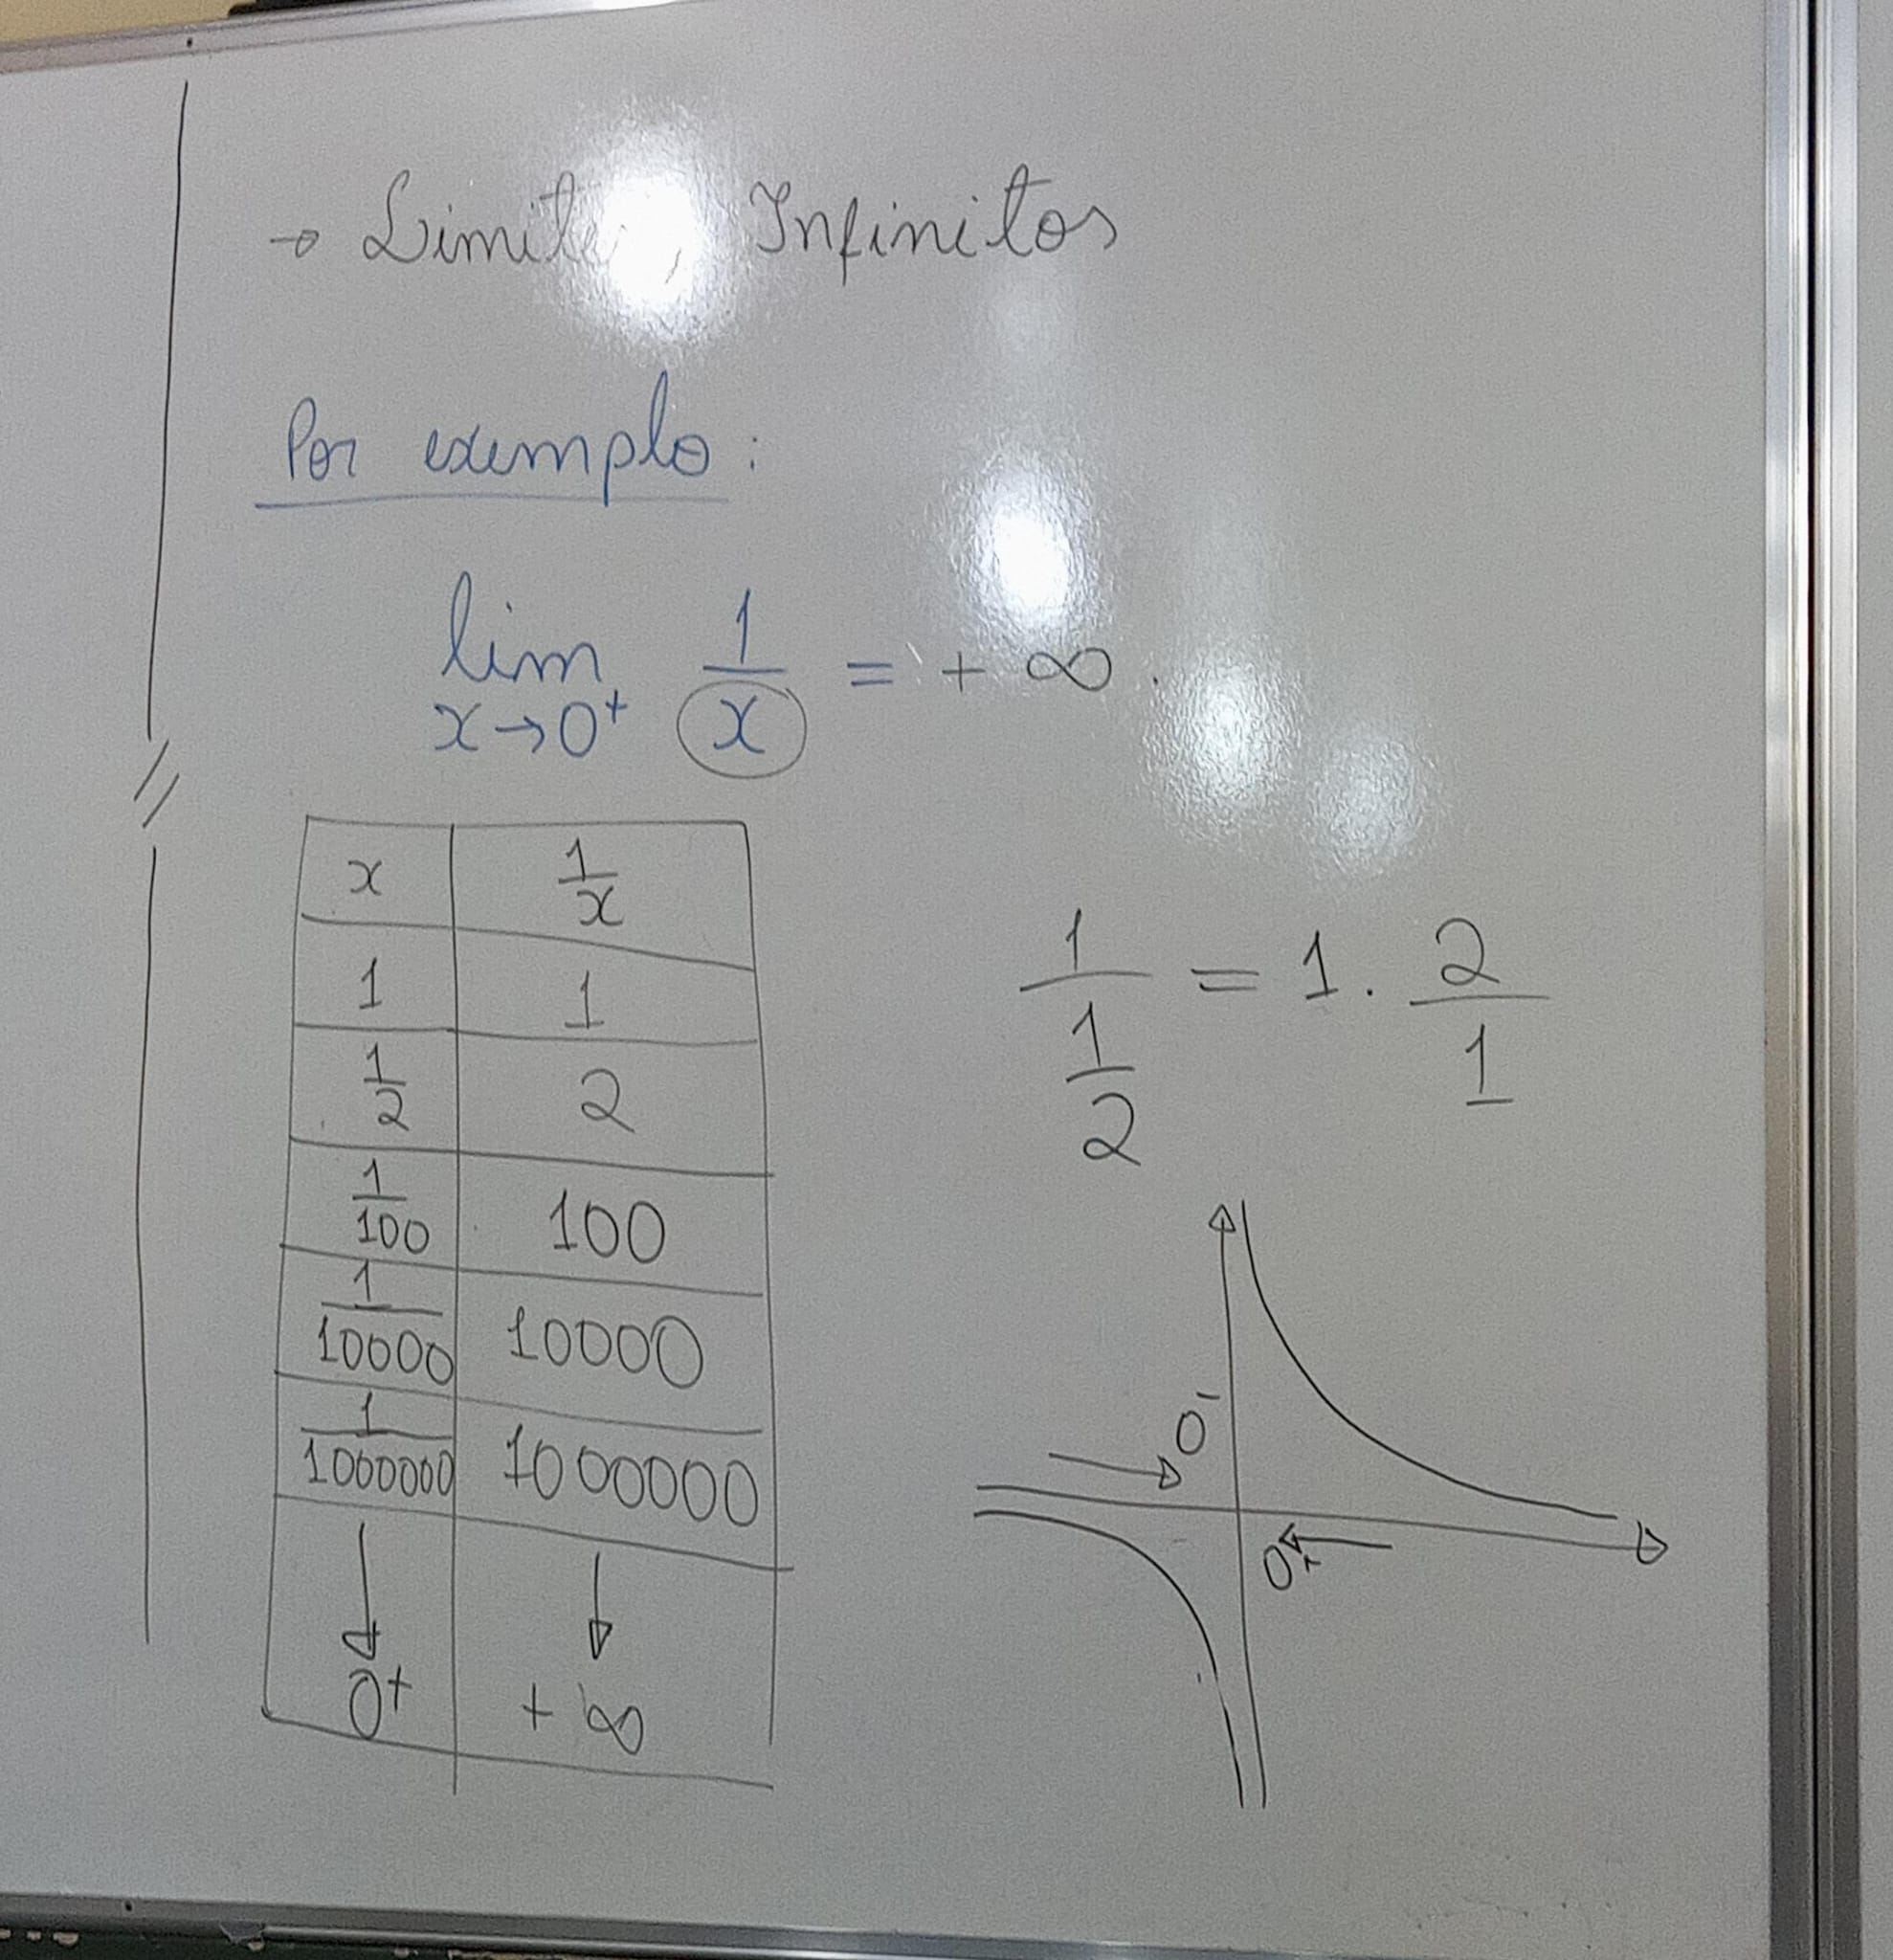 → Limites Infinitos
Por exemplo:
lim x→0⁺ 1/x = + ∞.
x | 1/x
1 | 1
1/2 | 2
1/100 | 100
1/10000 | 10000
1/1000000 | 1000000
↓ | ↓
0⁺ | + ∞
1/(1/2) = 1 . 2/1
0⁻
0⁺